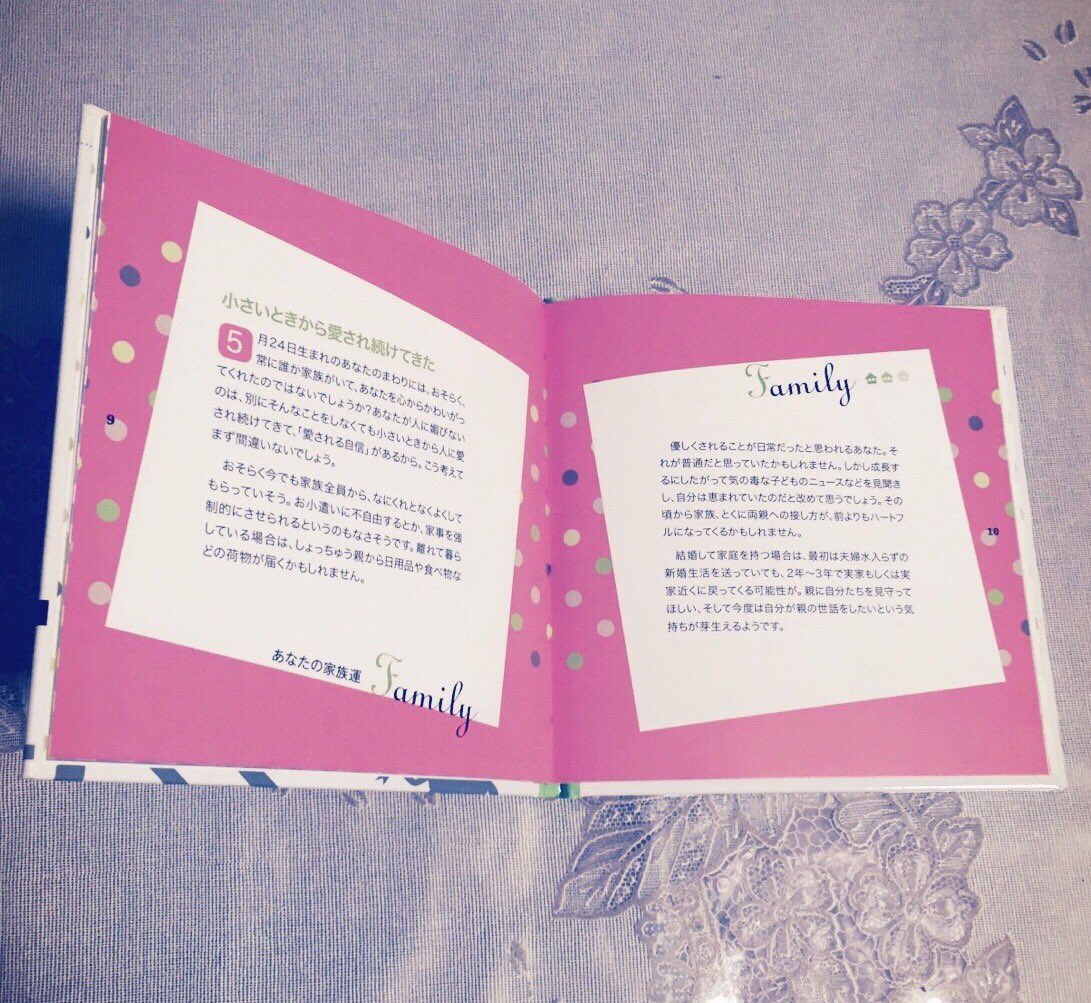 小さいときから愛され続けてきた
5月24日生まれのあなたのまわりには、おそらく、
常に誰か家族がいて、あなたを心からかわいがっ
てくれたのではないでしょうか?あなたが人に媚びない
のは、別にそんなことをしなくても小さいときから人に愛
され続けてきて、「愛される自信」があるから。こう考えて
まず間違いないでしょう。
おそらく今でも家族全員から、なにくれとなくよくして
もらっていそう。お小遣いに不自由するとか、家事を強
制的にさせられるというのもなさそうです。離れて暮ら
している場合は、しょっちゅう親から日用品や食べ物な
どの荷物が届くかもしれません。
あなたの家族運 Family
9
Family
優しくされることが日常だったと思われるあなた。そ
れが普通だと思っていたかもしれません。しかし成長す
るにしたがって気の毒な子どものニュースなどを見聞き
し、自分は恵まれていたのだと改めて思うでしょう。その
頃から家族、とくに両親への接し方が、前よりもハートフ
ルになってくるかもしれません。
結婚して家庭を持つ場合は、最初は夫婦水入らずの
新婚生活を送っていても、2年〜3年で実家もしくは実
家近くに戻ってくる可能性が。親に自分たちを見守って
ほしい、そして今度は自分が親の世話をしたいという気
持ちが芽生えるようです。
10